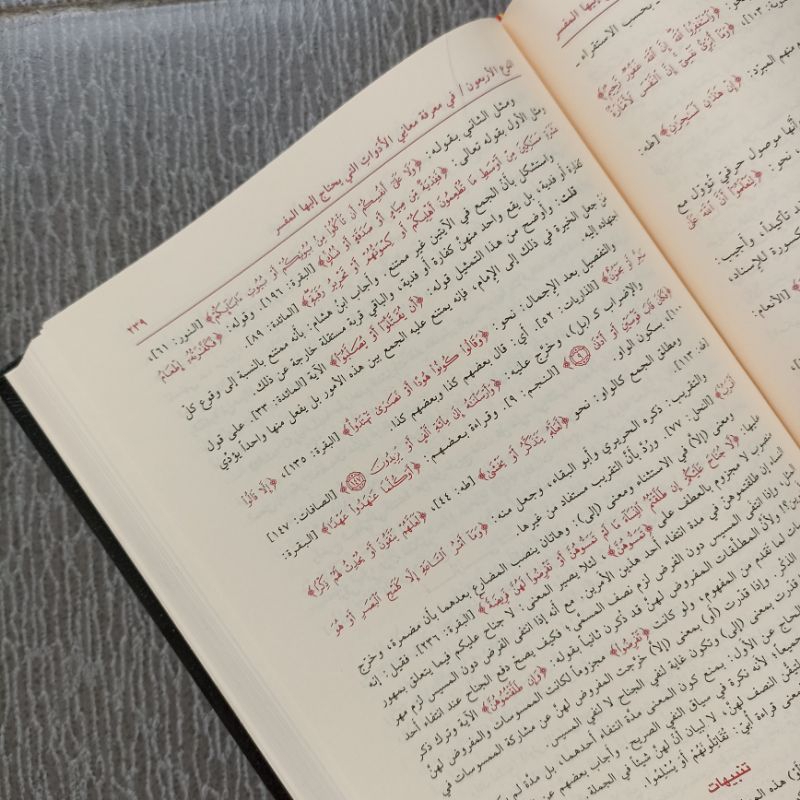 النوع الأربعون / في معرفة معاني الأدوات التي يحتاج إليها المفسر
٢٣٩
ومثل الثاني بقوله: ﴿وَلَا عَلَىٰ أَنفُسِكُمْ أَن تَأْكُلُوا مِنْ بُيُوتِكُمْ أَوْ بُيُوتِ ءَابَآئِكُمْ﴾ [النور: ٦١]،
ومثل الأول بقوله تعالى: ﴿فَفِدْيَةٌ مِّن صِيَامٍ أَوْ صَدَقَةٍ أَوْ نُسُكٍ﴾ [البقرة: ١٩٦]. وقوله: ﴿فَكَفَّٰرَتُهُۥٓ إِطْعَامُ
عَشَرَةِ مَسَٰكِينَ مِنْ أَوْسَطِ مَا تُطْعِمُونَ أَهْلِيكُمْ أَوْ كِسْوَتُهُمْ أَوْ تَحْرِيرُ رَقَبَةٍ﴾ [المائدة: ٨٩].
واستشكل بأنّ الجمع في الآيتين غير ممتنع. وأجاب ابن هشام: بأنه ممتنع بالنسبة إلى وقوع كلّ
كفارة أو فدية، بل يقع واحد منهنّ كفارة أو فدية، والباقي قربة مستقلة خارجة عن ذلك.
قلت: وأوضح من هذا التمثيل قوله: ﴿أَن يُقَتَّلُوٓا أَوْ يُصَلَّبُوٓا﴾ الآية [المائدة: ٣٣]. على قول
من جعل الخيرة في ذلك إلى الإمام، فإنه يمتنع عليه الجمع بين هذه الأمور بل يفعل منها واحداً يؤدّي
اجتهاده إليه.
والتفصيل بعد الإجمال: نحو: ﴿وَقَالُوا كُونُوا هُودًا أَوْ نَصَٰرَىٰ تَهْتَدُوا﴾ [البقرة: ١٣٥]، ﴿إِلَّا قَالُوا
سَاحِرٌ أَوْ مَجْنُونٌ﴾ [الذاريات: ٥٢]. أي: قال بعضهم كذا وبعضهم كذا.
والإضراب كـ (بل)، وخرّج عليه: ﴿وَأَرْسَلْنَٰهُ إِلَىٰ مِا۟ئَةِ أَلْفٍ أَوْ يَزِيدُونَ ١٤٧﴾ [الصافات: ١٤٧]
﴿فَكَانَ قَابَ قَوْسَيْنِ أَوْ أَدْنَىٰ ٩﴾ [النجم: ٩]. وقراءة بعضهم: ﴿أَوَكُلَّمَا عَٰهَدُوا عَهْدًا﴾ [البقرة:
١٠٠]. بسكون الواو.
ومطلق الجمع كالواو: نحو ﴿لَّعَلَّهُۥ يَتَذَكَّرُ أَوْ يَخْشَىٰ﴾ [طه: ٤٤]، ﴿لَعَلَّهُمْ يَتَّقُونَ أَوْ يُحْدِثُ لَهُمْ ذِكْرًا﴾
[طه: ١١٣].
والتقريب: ذكره الحريري وأبو البقاء، وجعل منه: ﴿وَمَآ أَمْرُ ٱلسَّاعَةِ إِلَّا كَلَمْحِ ٱلْبَصَرِ أَوْ هُوَ
أَقْرَبُ﴾ [النحل: ٧٧]. وردّ بأنّ التقريب مستفاد من غيرها.
ومعنى (إلا) في الاستثناء ومعنى (إلى): وهاتان ينصب المضارع بعدهما بأن مضمرة، وخرّج
عليها: ﴿لَّا جُنَاحَ عَلَيْكُمْ إِن طَلَّقْتُمُ ٱلنِّسَآءَ مَا لَمْ تَمَسُّوهُنَّ أَوْ تَفْرِضُوا لَهُنَّ فَرِيضَةً﴾ [البقرة: ٢٣٦]. فقيل: إنه
منصوب لا مجزوم بالعطف على ﴿تَمَسُّوهُنَّ﴾، لئلا يصير المعنى: لا جناح عليكم فيما يتعلق بمهور
النساء إن طلقتموهنّ في مدة انتفاء أحد هذين الأمرين. مع أنه إذا انتفى الفرض دون المسيس لزم مهر
المثل، وإذا انتفى المسيس دون الفرض لزم نصف المسمّى، فكيف يصح دفع الجناح عند انتفاء أحد
ولأنّ المطلّقات المفروض لهنّ قد ذكرن ثانياً بقوله: ﴿وَإِن طَلَّقْتُمُوهُنَّ﴾ الآية وترك ذكر
لما تقدم من المفهوم، ولو كانت ﴿تَفْرِضُوا﴾ مجزوماً لكانت الممسوسات والمفروض لهنّ
الذكر. وإذا قدرت (أو) بمعنى (إلا) خرجت المفروض لهنّ عن مشاركة الممسوسات في
قدرت بمعنى (إلى) وتكون غاية لنفي الجناح لا لنفي المسيس.
الحاجّ عن الأول: بمنع كون المعنى مدة انتفاء أحدهما، بل مدّة لم
جميعاً؛ لأنه نكرة في سياق النفي الصريح. وأجاب بعضهم عن
النصف لهنّ، لا لبيان أنّ لهنّ شيئاً في الجملة.
معنى قراءة أبيّ: تُقَاتِلُونَهُمْ أَوْ يُسْلِمُوا.
تنبيهات
هذه
إليها المفسر
بحسب الاستقراء ـ
نحو: ﴿وَٱسْتَغْفِرُوا ٱللَّهَ إِنَّ ٱللَّهَ غَفُورٌ رَّحِيمٌ﴾
﴿وَمَآ أُبَرِّئُ نَفْسِىٓ إِنَّ ٱلنَّفْسَ لَأَمَّارَةٌ
منهم المبرّد: ﴿إِنْ هَٰذَٰنِ لَسَٰحِرَٰنِ﴾ [طه:
أنّها موصول حرفيّ تؤوّل مع
نحو: ﴿لِتَعْلَمُوٓا أَنَّ ٱللَّهَ عَلَىٰ
تأكيداً، وأجيب:
المكسورة للإسناد،
[الأنعام: